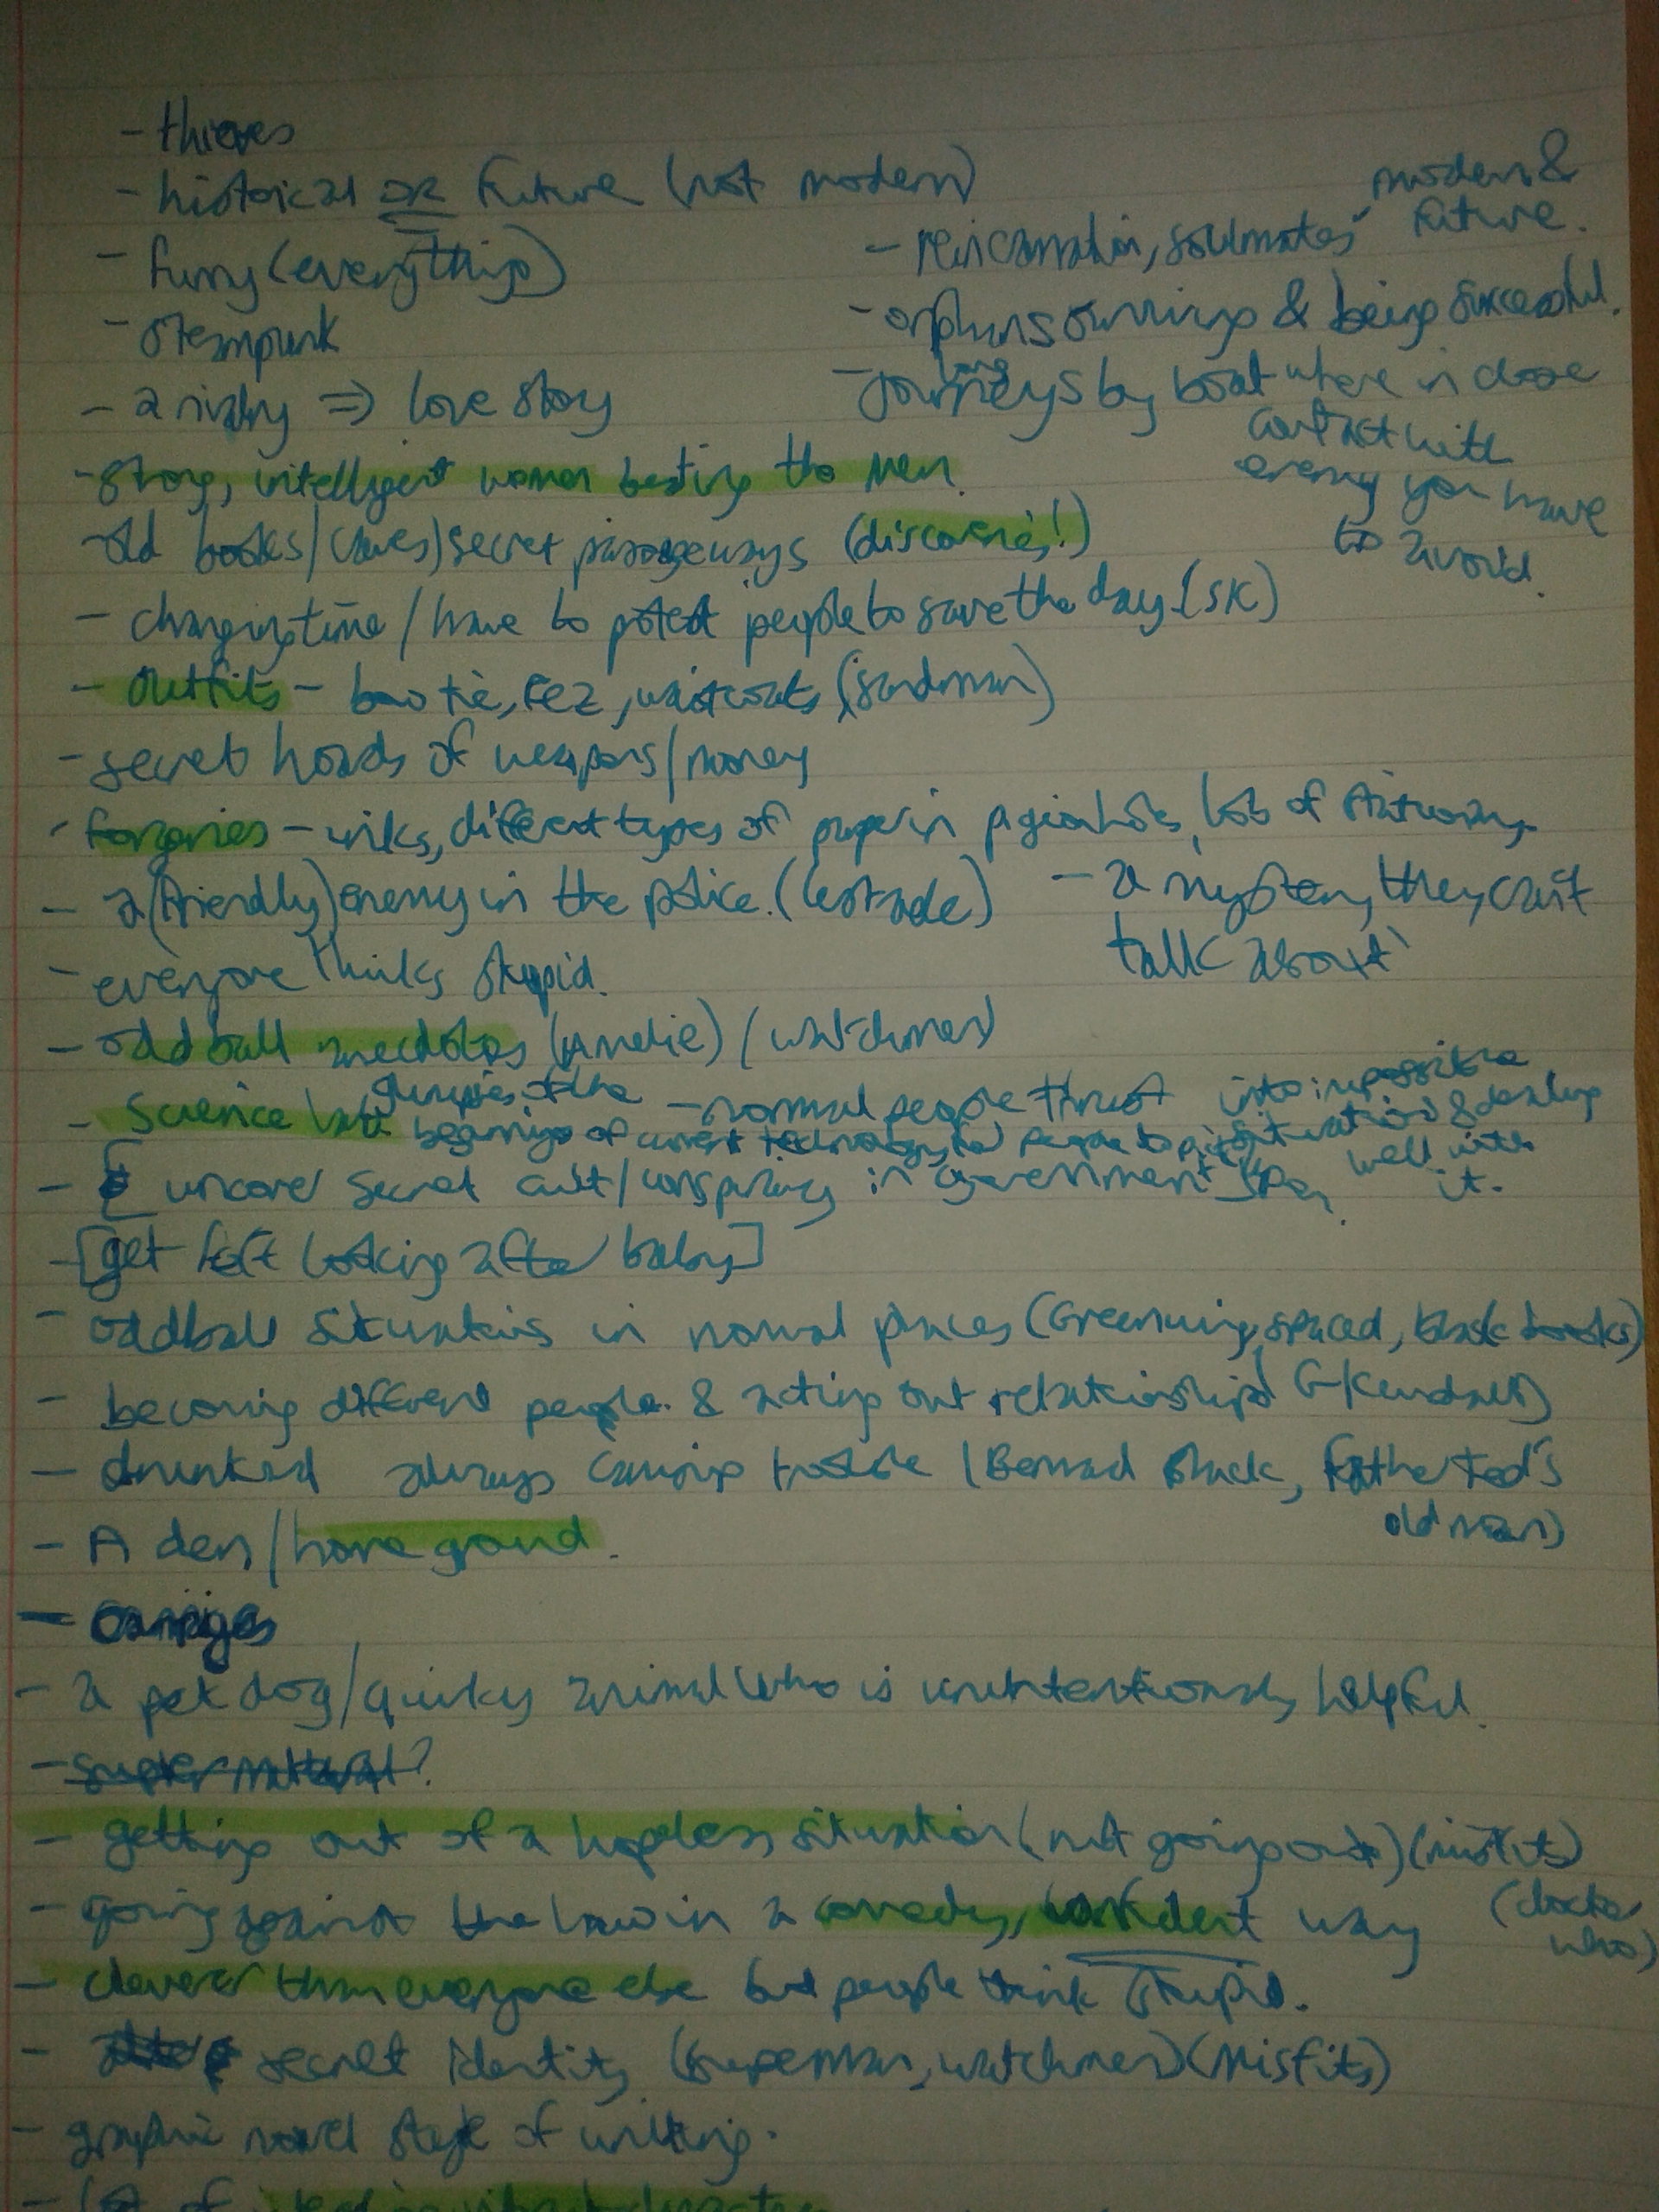 - thieves
- historical OR future (not modern)
- funny (everything)
- steampunk
- a rivalry => love story
- reincarnation, soulmates - modern &
future.
- orphans surviving & being successful.
- long journeys by boat where in close
contact with
enemy you have
to avoid.
- strong, intelligent women besting the men.
- old books/caves/secret passageways (discoveries!)
- changing time / have to protect people to save the day (SK)
- outfits - bow tie, fez, waistcoats (sandman)
- secret hoards of weapons/money
- forgeries - inks, different types of paper in pigeonholes, lots of
- a (friendly) enemy in the police. (lestrade)
- a mystery they can't
talk about
- everyone thinks stupid.
- oddball anecdotes (Amelie) / (watchmen)
- Science glimpses of the
beginnings of current technology, people to
- normal people thrust into impossible
situations & dealing
well with
it.
- [uncover secret cult/conspiracy in government]
- [get left looking after baby]
- oddball situations in normal places (Greenwing, spaced, black books)
- becoming different people & acting out relationships (G Kendall)
- drunkard always causing trouble (Bernard Black, Father Ted's
old man)
- A den/home ground.
- carriages
- a pet dog/quirky animal who is unintentionally helpful.
- supernatural?
- getting out of a hopeless situation (not going out) (misfits)
- going against the law in a comedy, confident way (doctor
who)
- cleverer than everyone else but people think stupid.
- secret identity (superman, watchmen) (misfits)
- graphic novel style of writing.
- lot of